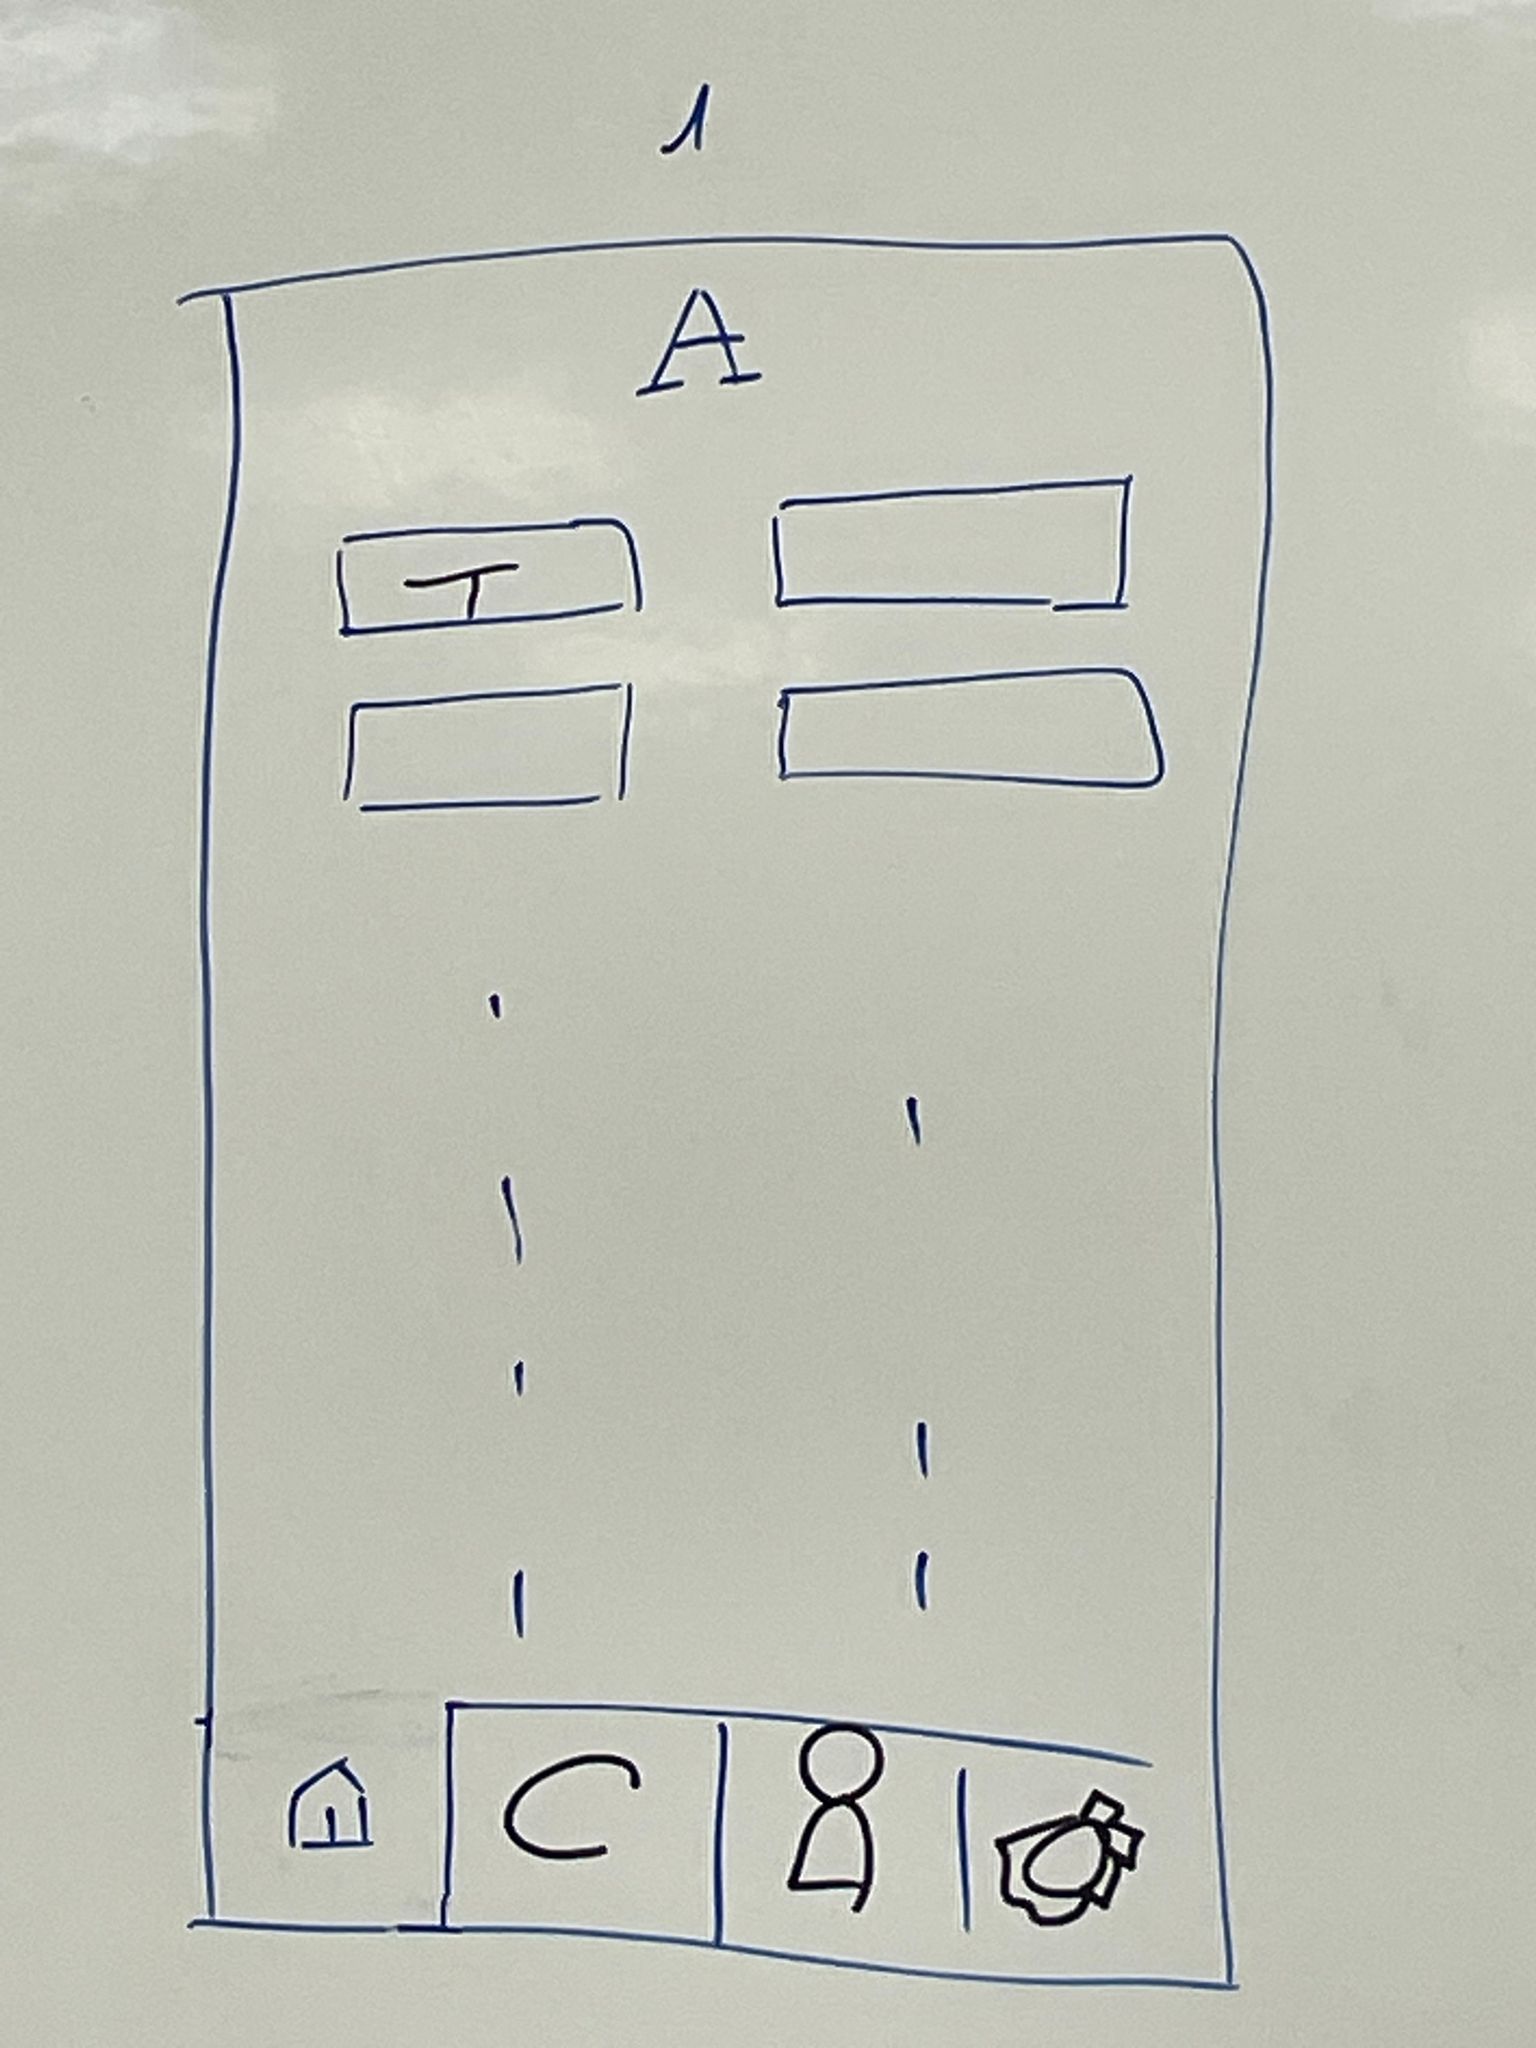 1
A
T
C